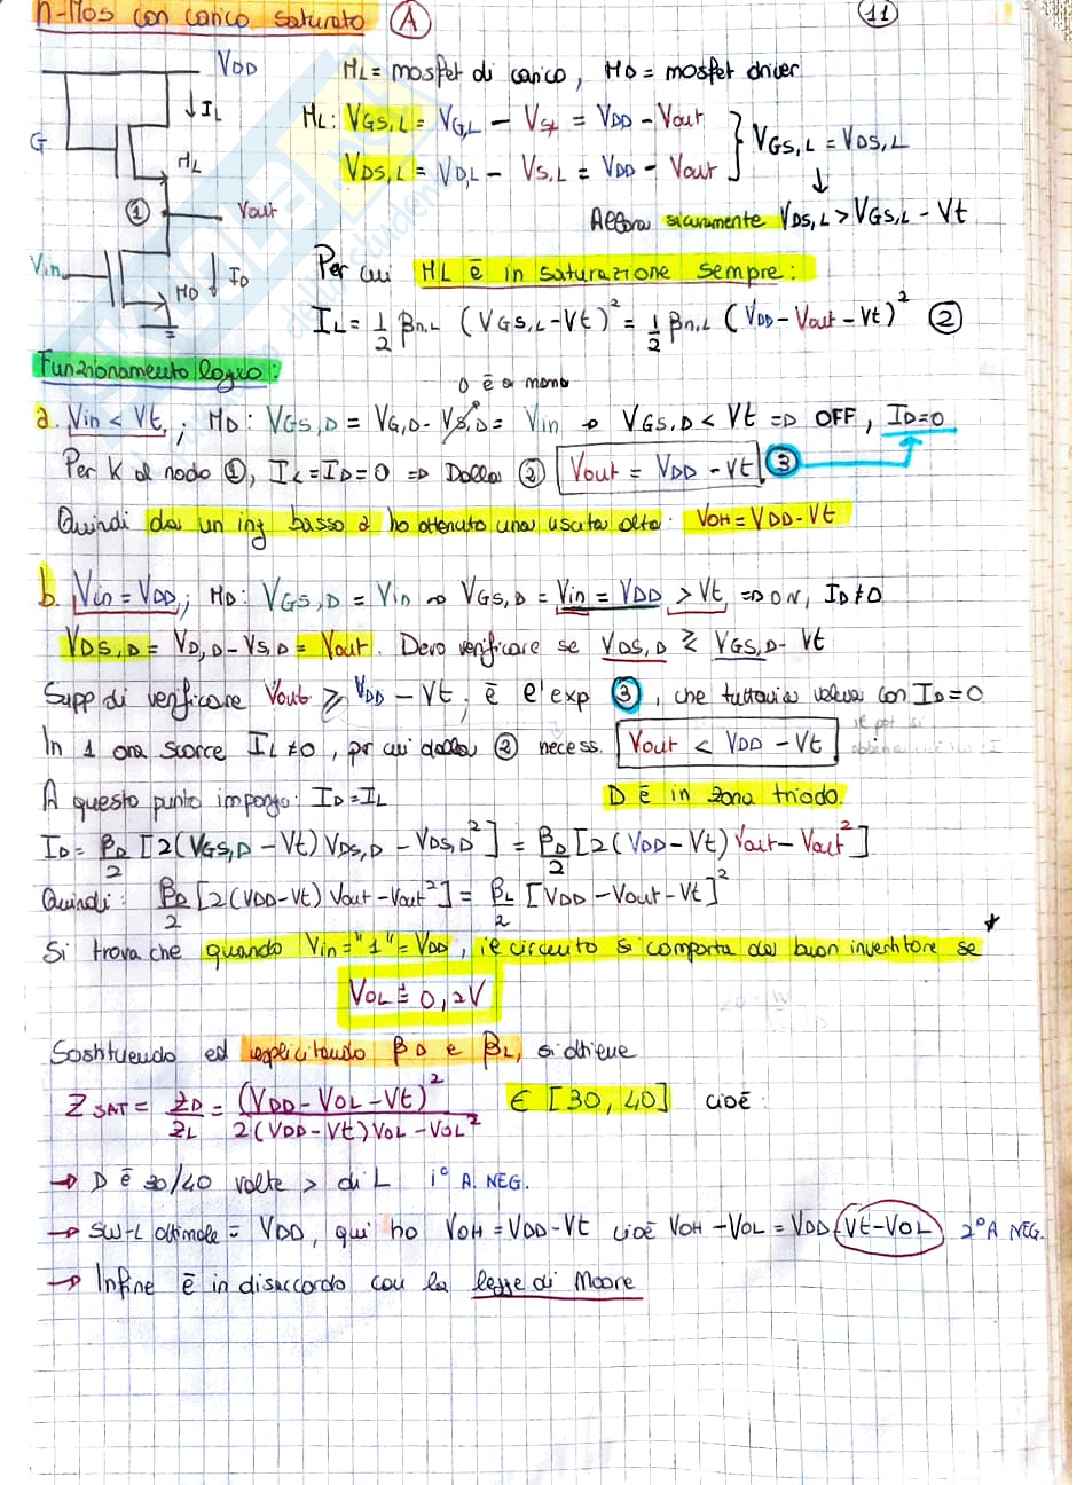 n-Mos con carico saturato (A) 11
VDD
IL
G
ML
① Vout
Vin
ID
MD
ML = mosfet di carico, MD = mosfet driver
ML: VGS,L = VG,L - VS,L = VDD - Vout
VDS,L = VD,L - VS,L = VDD - Vout } VGS,L = VDS,L
↓
Allora sicuramente VDS,L > VGS,L - Vt
Per cui ML è in saturazione sempre:
IL = 1/2 βn,L (VGS,L - Vt)² = 1/2 βn,L (VDD - Vout - Vt)² ②
Funzionamento logico:
D è a massa
a. Vin < Vt; MD: VGS,D = VG,D - VS,D = Vin → VGS,D < Vt => OFF, ID=0
Per K al nodo ①, IL = ID = 0 => Dalla ② Vout = VDD - Vt ③
Quindi da un ing basso ho ottenuto una uscita alta: VOH = VDD - Vt
b. Vin = VDD; MD: VGS,D = Vin → VGS,D = Vin = VDD > Vt => ON, ID≠0
VDS,D = VD,D - VS,D = Vout. Devo verificare se VDS,D ≷ VGS,D - Vt
Supp di verificare Vout ≥ VDD - Vt; è l'exp ③, che tuttavia valeva con ID=0
In 1 ora scorre IL≠0, per cui dalla ② necess. Vout < VDD - Vt
A questo punto impongo: ID = IL D è in zona triodo.
ID = βD/2 [2(VGS,D - Vt) VDS,D - VDS,D²] = βD/2 [2(VDD - Vt) Vout - Vout²]
Quindi: βD/2 [2(VDD-Vt) Vout - Vout²] = βL/2 [VDD - Vout - Vt]²
Si trova che quando Vin = "1" = VDD, il circuito si comporta da buon invertitore se
VOL ≐ 0,2V
Sostituendo ed esplicitando βD e βL, si ottiene
ZSAT = ZD/ZL = (VDD - VOL - Vt)² / 2(VDD - Vt)VOL - VOL² ∈ [30, 40] cioè:
→ D è 30/40 volte > di L 1° A. NEG.
→ SW-L ottimale = VDD, qui ho VOH = VDD - Vt cioè VOH - VOL = VDD - Vt - VOL 2° A NEG.
→ Infine è in disaccordo con la legge di Moore